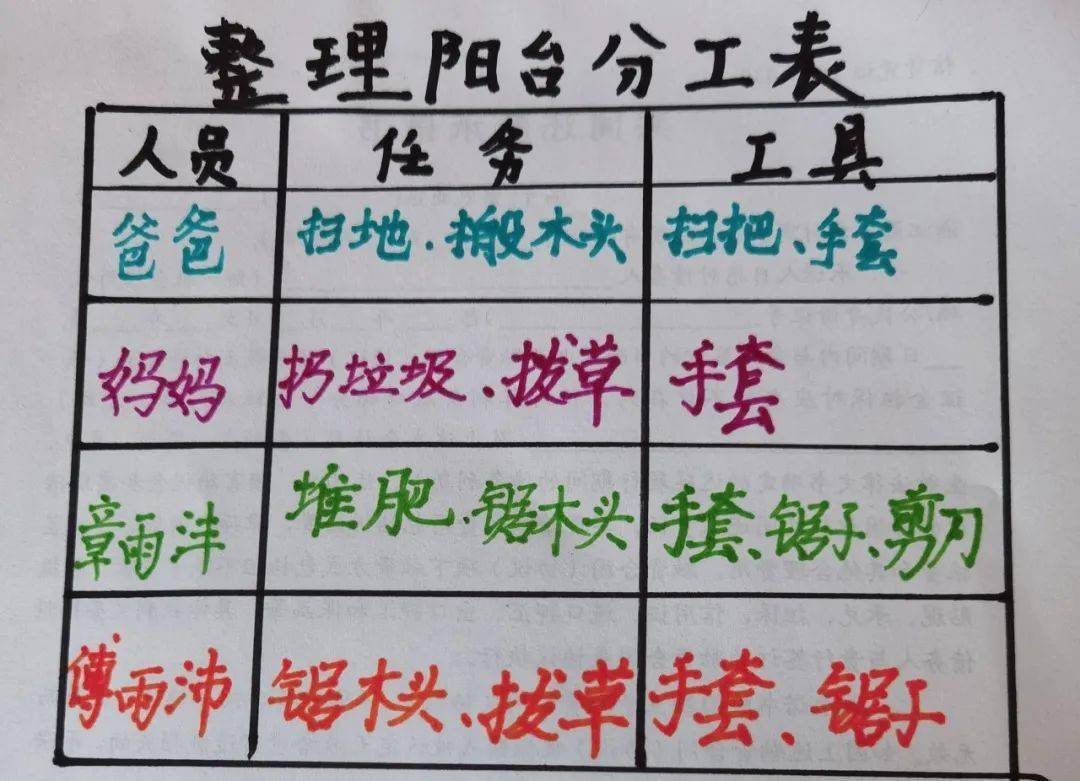 整理阳台分工表
人员 任务 工具
爸爸 扫地、搬木头 扫把、手套
妈妈 扔垃圾、拔草 手套
章雨沣 堆肥、锯木头 手套、锯子、剪刀
傅雨沛 锯木头、拔草 手套、锯子